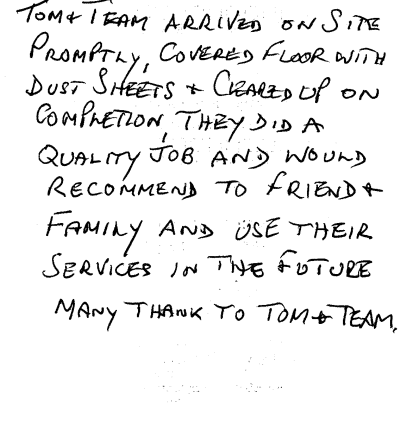 TOM & TEAM ARRIVED ON SITE
PROMPTLY, COVERED FLOOR WITH
DUST SHEETS & CLEARED UP ON
COMPLETION, THEY DID A
QUALITY JOB AND WOULD
RECOMMEND TO FRIEND &
FAMILY AND USE THEIR
SERVICES IN THE FUTURE
MANY THANK TO TOM & TEAM.